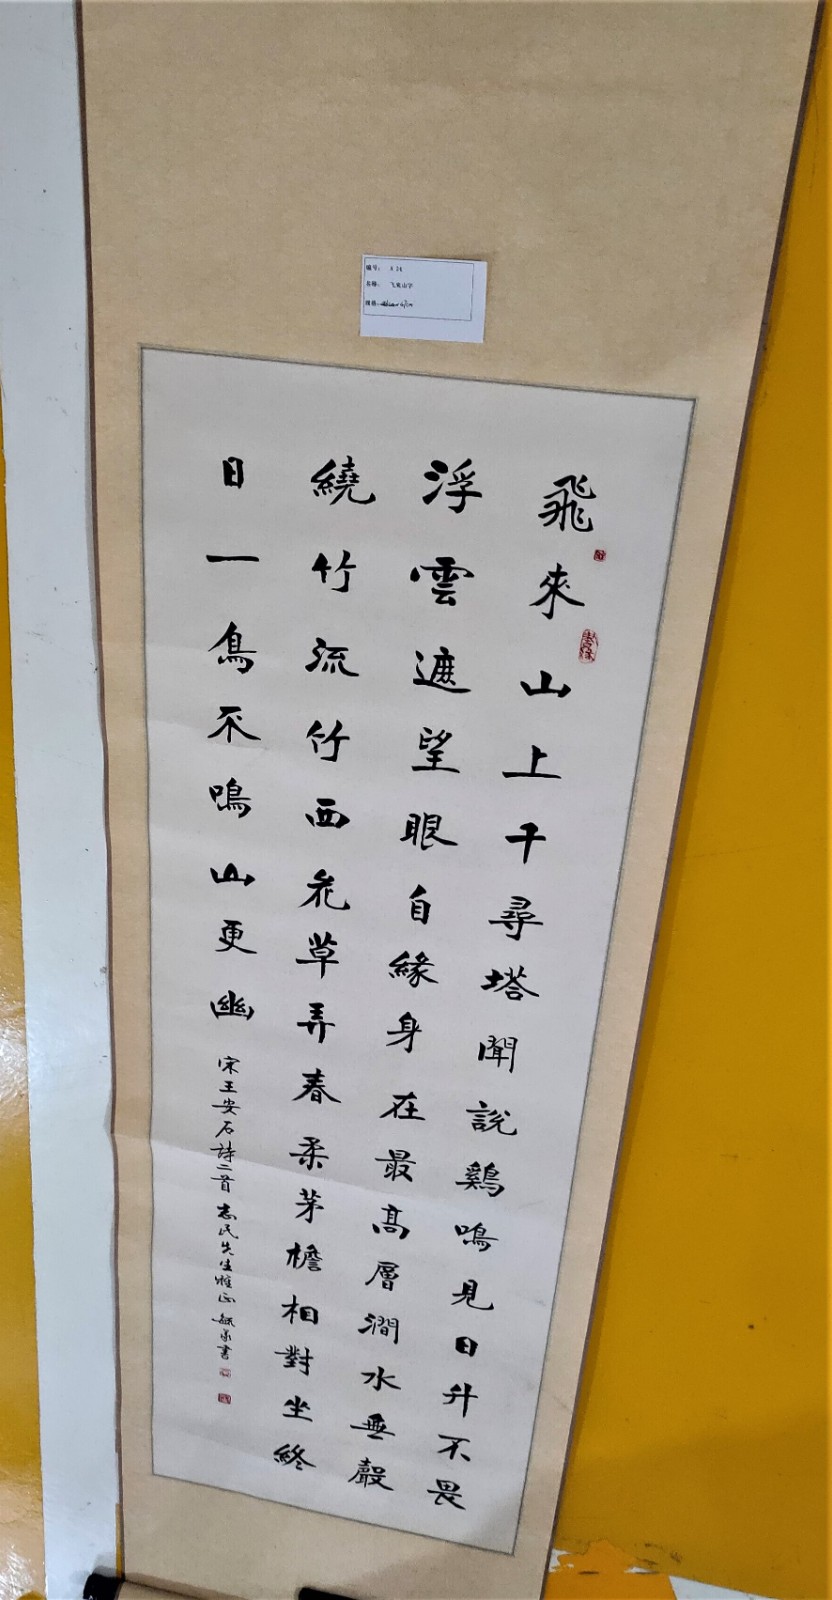 编号：
名称： 飞来山字
规格：
飛來山上千尋塔聞說鷄鳴見日升不畏
浮雲遮望眼自緣身在最高層澗水無聲
繞竹流竹西花草弄春柔茅檐相對坐終
日一鳥不鳴山更幽 宋王安石詩二首 志民先生雅正 書